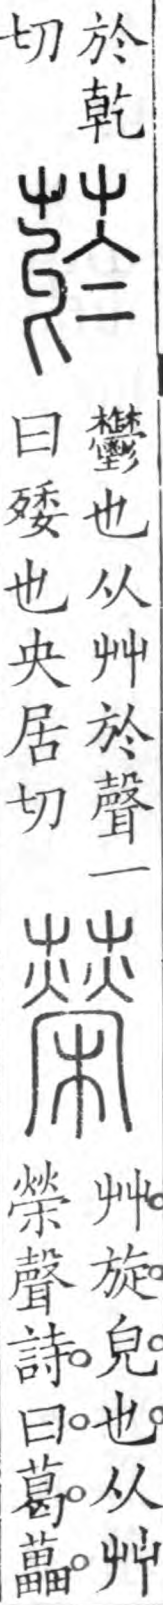 於乾
切
菸
鬱也从艸於聲一
曰矮也央居切
蘂
艸旋皃也从艸
榮聲詩曰葛藟